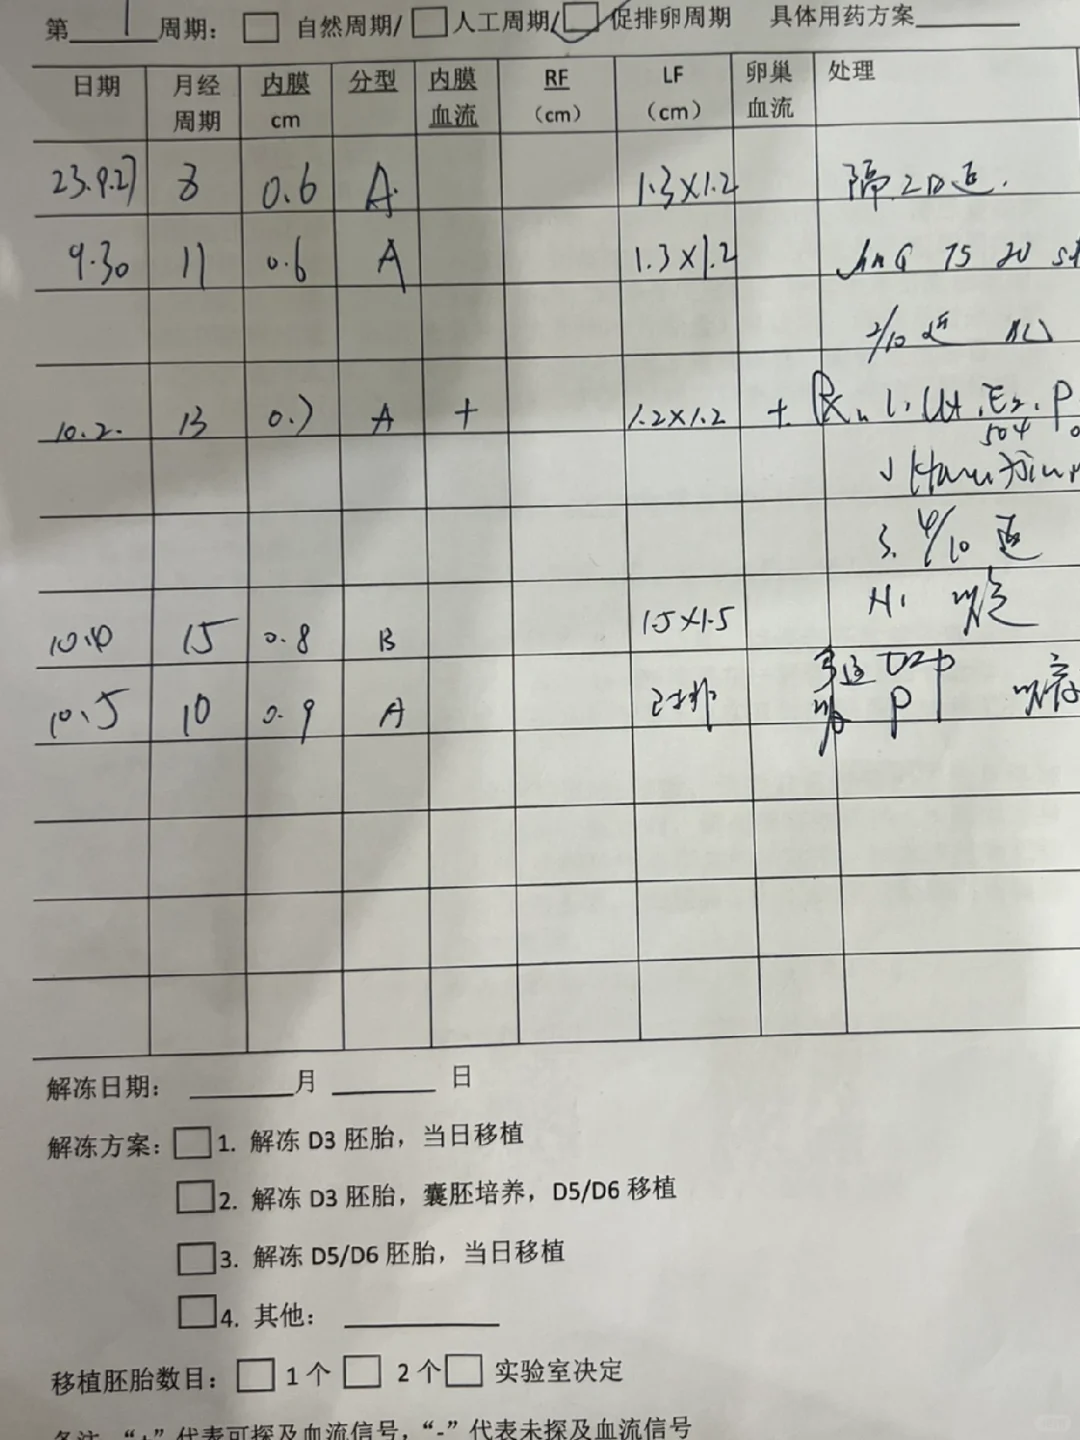 第 1 周期： □ 自然周期/ □ 人工周期/ □ 促排卵周期 具体用药方案
日期 月经周期 内膜 cm 分型 内膜血流 RF（cm） LF（cm） 卵巢血流 处理
23.9.27 8 0.6 A 1.3×1.2 隔2D返.
9.30 11 0.6 A 1.3×1.2 HMG 75
2/10 返
10.2. 13 0.7 A + 1.2×1.2 + 1. LH. E2. P
504
3. 4/10 返
10.4 15 0.8 B 1.5×1.5
10.5 10 0.9 A 已排 P
解冻日期： 月 日
解冻方案： □ 1. 解冻 D3 胚胎，当日移植
□ 2. 解冻 D3 胚胎，囊胚培养，D5/D6 移植
□ 3. 解冻 D5/D6 胚胎，当日移植
□ 4. 其他：
移植胚胎数目： □ 1 个 □ 2 个 □ 实验室决定
备注 “+”代表可探及血流信号，“-”代表未探及血流信号